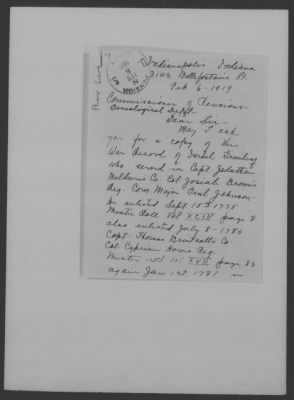 Indianapolis Indiana
3142 Bellefontaine St.
Feb 6-1919
Commissioner of Pensions-
Genealogical Dept-
Dear Sir-
May I ask
you for a copy of the
War Record of Israel
who served in Capt. Jonathan
Baldwin's Co. Col Josiah Brown's
Reg. Com. Major Ceul Johnson.
He enlisted Sept 15th 1775
Muster Roll Vol XCIV page 8
also enlisted July 8-1780
Capt Thomas Co-
Col. Cyprian Howe's Reg
Muster roll vol XXII page 83
again Jan 1st 1781 in